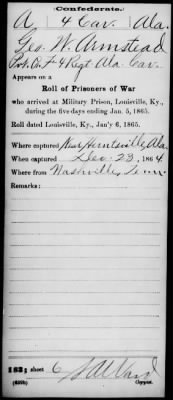 Confederate.
A 4 Cav. Ala.
Geo. W. Armstead
Co. 4 Regt Ala. Cav.
Appears on a
Roll of Prisoners of War
who arrived at Military Prison, Louisville, Ky.,
during the five days ending Jan. 5, 1865.
Roll dated Louisville, Ky., Jan'y 6, 1865.
Where captured Near Huntsville, Ala.
When captured Dec. 23, 1864.
Where from Nashville, Tenn.
Remarks:
sheet 6
Copyist.